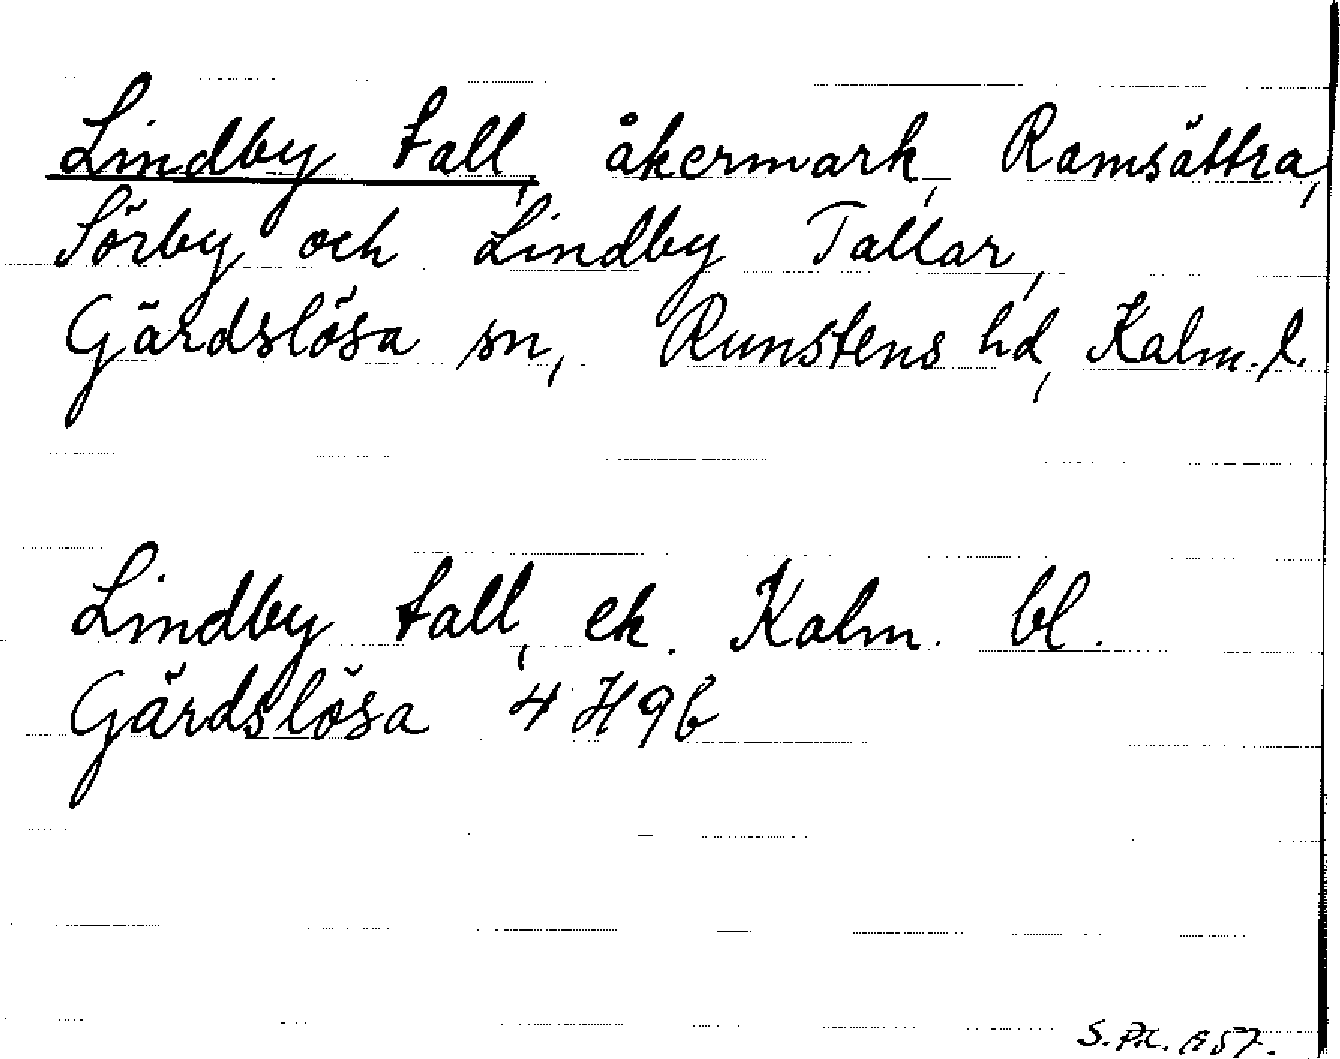 Lindby tall, åkermark, Ramsättra,
Sörby och Lindby Tallar,
Gärdslösa sn, Runstens hd, Kalm. l.
Lindby tall, ek. Kalm. bl.
Gärdslösa 4 H 9 b
S. PK. 1957.